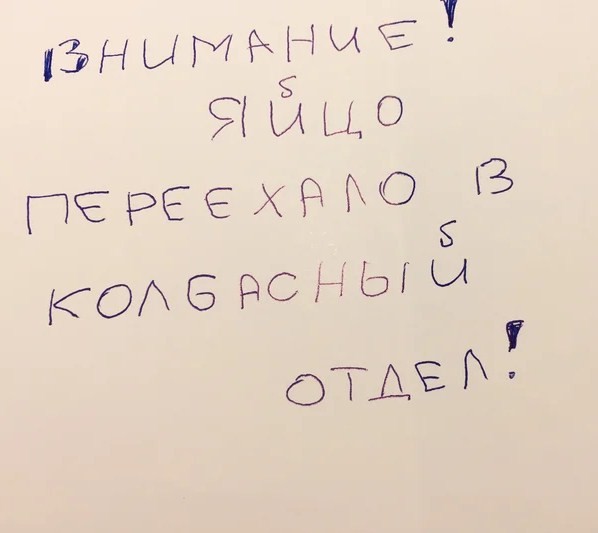 ВНИМАНИЕ!
ЯЙЦО
ПЕРЕЕХАЛО В
КОЛБАСНЫЙ
ОТДЕЛ!